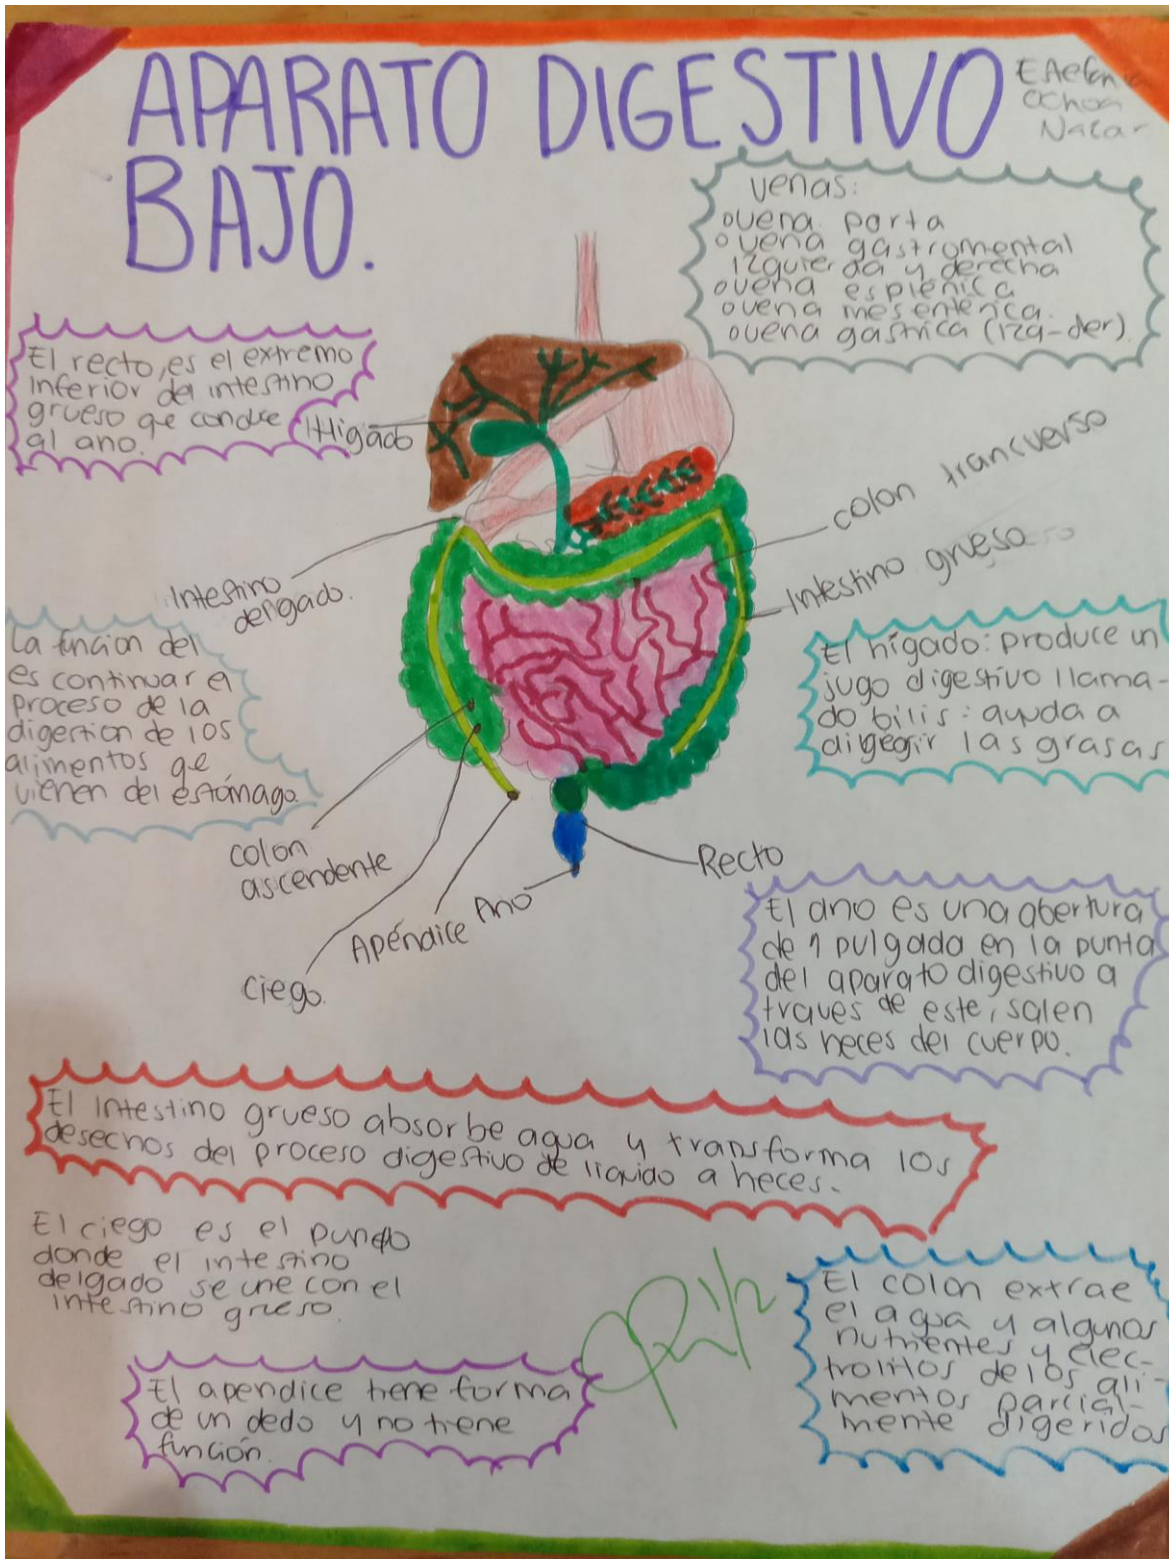 APARATO DIGESTIVO
BAJO.
Ochoa
venas:
○vena porta
○vena gastromental
izquierda y derecha
○vena esplénica
○vena mesentérica.
○vena gástrica (izq-der).
El recto, es el extremo
inferior del intestino
grueso qe conduce
al ano.
Hígado
colon trancuerso
Intestino grueso
Intestino
delgado.
La función del
es continuar el
proceso de la
digestion de los
alimentos qe
vienen del estómago.
El hígado: produce un
jugo digestivo llama-
do bilis: ayuda a
digegir las grasas
colon
ascendente
Apéndice
Ano
Recto
ciego.
El ano es una abertura
de 1 pulgada en la punta
del aparato digestivo a
traves de este, salen
las heces del cuerpo.
El Intestino grueso absorbe agua y transforma los
desechos del proceso digestivo de liquido a heces.
El ciego es el punto
donde el intestino
delgado se une con el
intestino grueso.
El colon extrae
el agua y algunos
nutrientes y elec-
trolitos de los ali-
mentos parcial-
mente digeridos
El apendice tiene forma
de un dedo y no tiene
función.